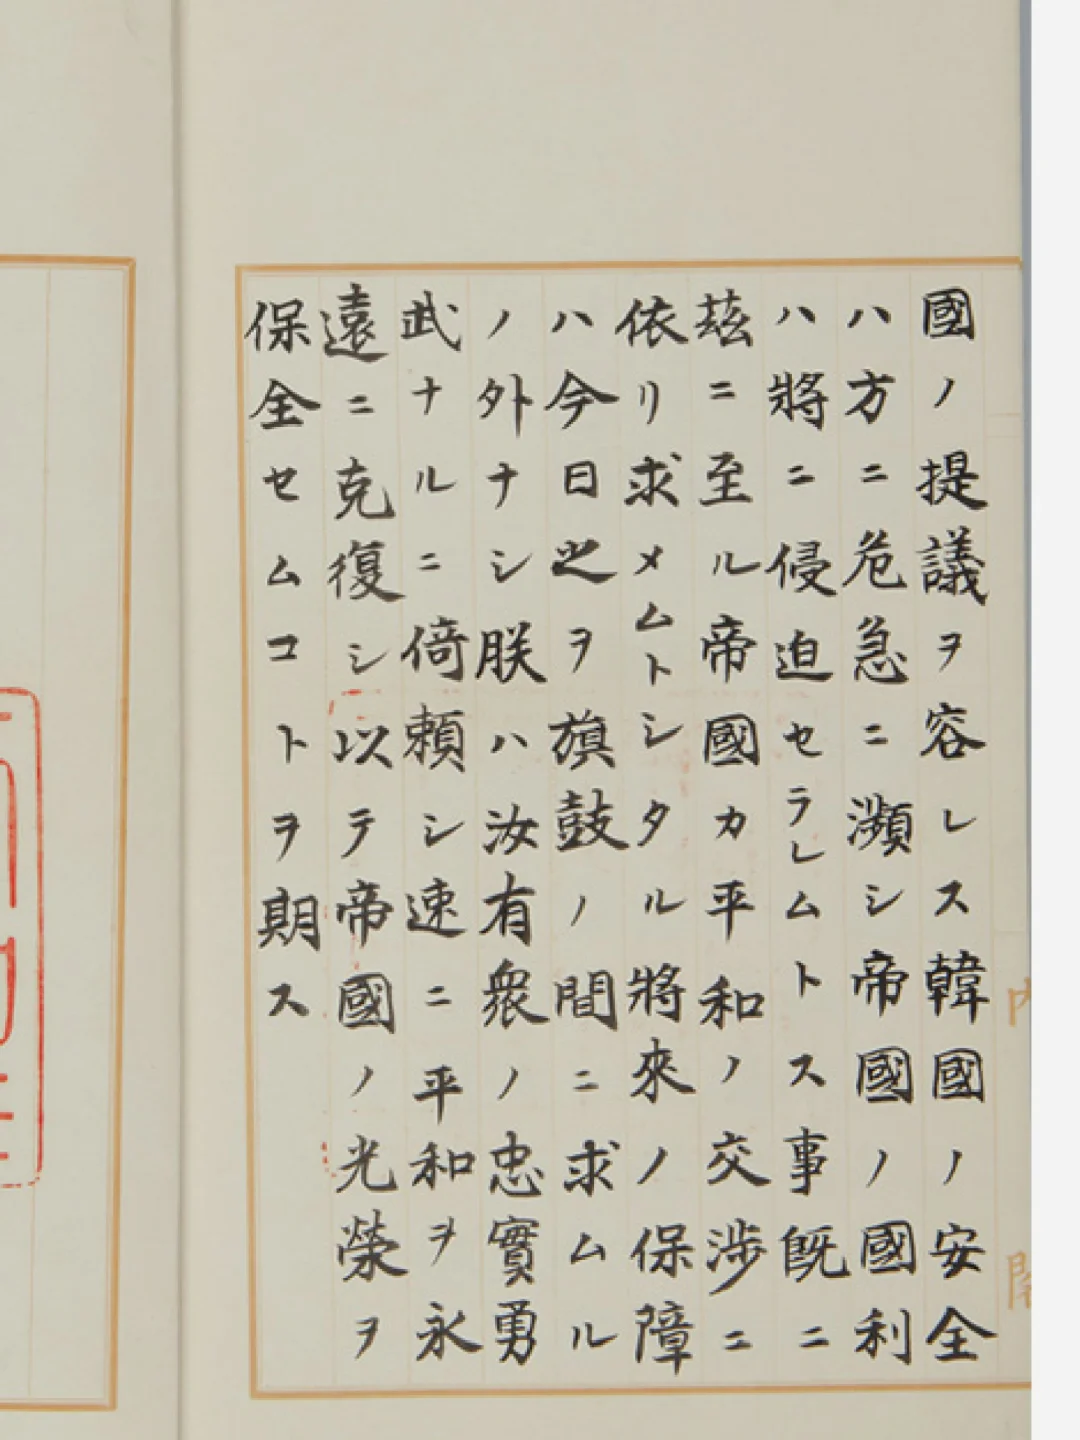 國ノ提議ヲ容レス韓國ノ安全
ハ方ニ危急ニ瀕シ帝國ノ國利
ハ將ニ侵迫セラレムトス事既ニ
茲ニ至ル帝國カ平和ノ交渉ニ
依リ求メムトシタル將來ノ保障
ハ今日之ヲ旗鼓ノ間ニ求ムル
ノ外ナシ朕ハ汝有衆ノ忠實勇
武ナルニ倚頼シ速ニ平和ヲ永
遠ニ克復シ以テ帝國ノ光榮ヲ
保全セムコトヲ期ス